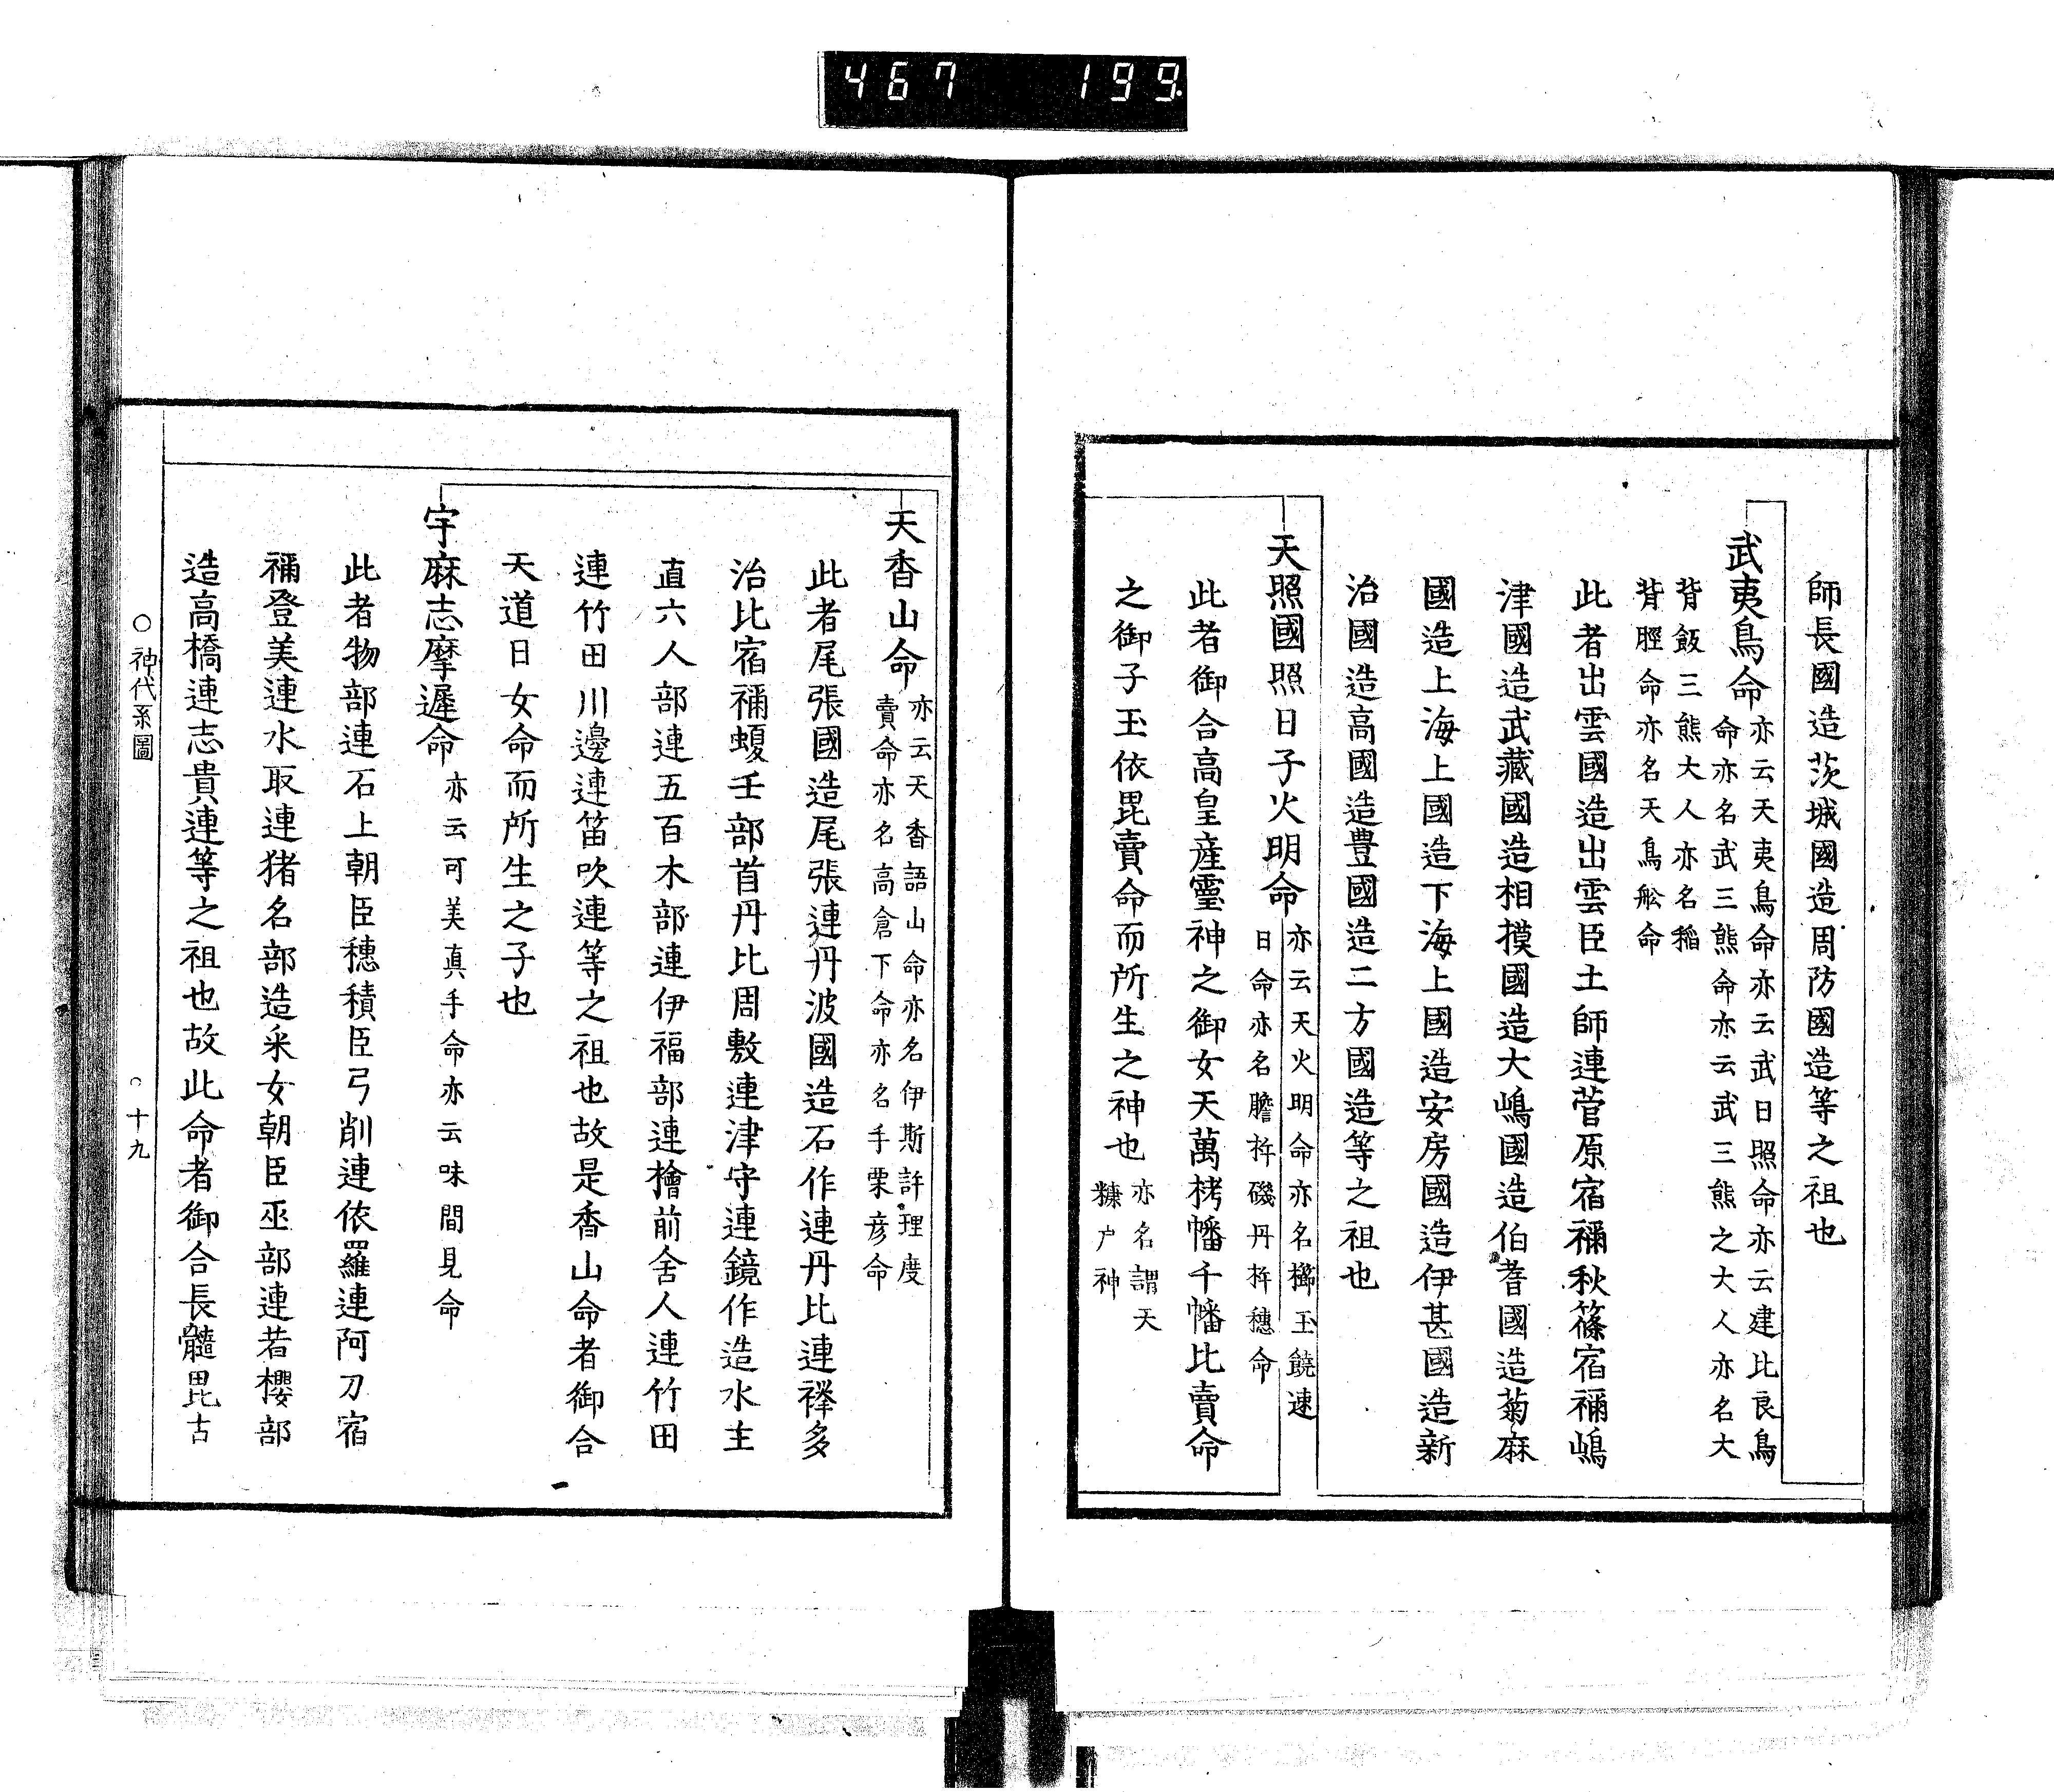 467 199
師長國造茨城國造周防國造等之祖也
武夷鳥命
亦云天夷鳥命亦云武日照命亦云建比良鳥
命亦名武三熊命亦云武三熊之大人亦名大
背飯三熊大人亦名稲
背脛命亦名天鳥舩命
此者出雲國造出雲臣土師連菅原宿禰秋篠宿禰嶋
津國造武藏國造相摸國造大嶋國造伯耆國造菊麻
國造上海上國造下海上國造安房國造伊甚國造新
治國造高國造豊國造二方國造等之祖也
天照國照日子火明命
亦云天火明命亦名櫛玉饒速
日命亦名膽杵磯丹杵穗命
此者御合高皇産靈神之御女天萬栲幡千幡比賣命
之御子玉依毘賣命而所生之神也
亦名謂天
糠户神
天香山命
亦云天香語山命亦名伊斯許理度
賣命亦名高倉下命亦名手栗彦命
此者尾張國造尾張連丹波國造石作連丹比連襷多
治比宿禰蝮壬部首丹比周敷連津守連鏡作造水主
直六人部連五百木部連伊福部連檜前舍人連竹田
連竹田川邊連笛吹連等之祖也故是香山命者御合
天道日女命而所生之子也
宇麻志摩遲命
亦云可美真手命亦云味間見命
此者物部連石上朝臣穗積臣弓削連依羅連阿刀宿
禰登美連水取連猪名部造采女朝臣巫部連若櫻部
造高橋連志貴連等之祖也故此命者御合長髓毘古
○神代系圖
○十九